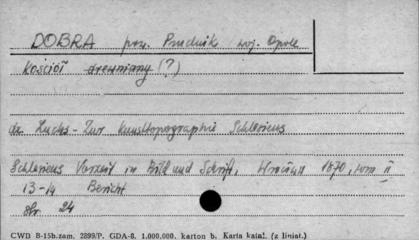 DOBRA pow. Prudnik woj. Opole
Kościół drewniany (?)
dr. Luchs - Zur Kunsttopographie Schlesiens
Schlesiens Vorzeit in Bild und Schrift, Wrocław 1870, tom II
13-14 Bericht
Str. 24
CWD B-15b.zam. 2899/P. GDA-8. 1.000.000. karton b. Karta katal. (z liniat.)